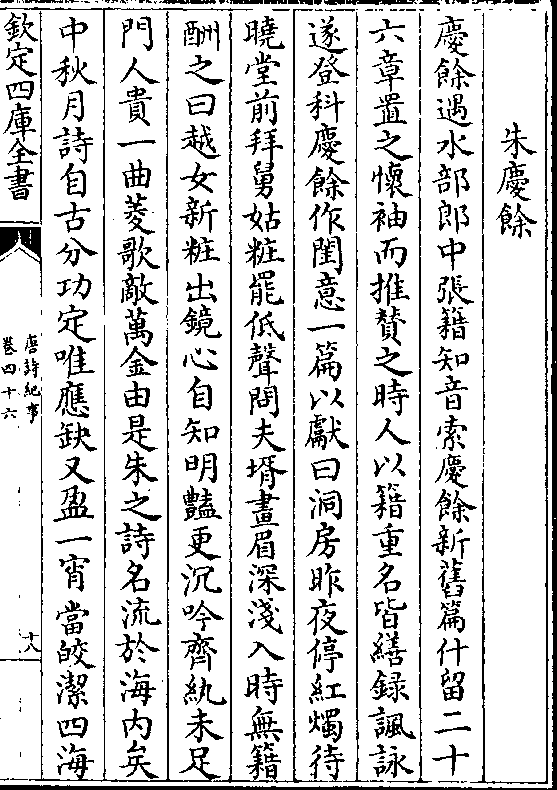 朱慶餘
慶餘遇水部郎中張籍知音索慶餘新舊篇什留二十
六章置之懷袖而推賛之時人以籍重名皆繕録諷詠
遂登科慶餘作閨意一篇以獻曰洞房昨夜停紅燭待
曉堂前拜舅姑粧罷低聲問夫壻畫眉深淺入時無籍
酬之曰越女新粧出鏡心自知明豔更沉吟齊紈未足
門人貴一曲菱歌敵萬金由是朱之詩名流於海内矣
中秋月詩自古分功定唯應缺又盈一宵當皎潔四海
欽定四庫全書
唐詩紀事
卷四十六
十八